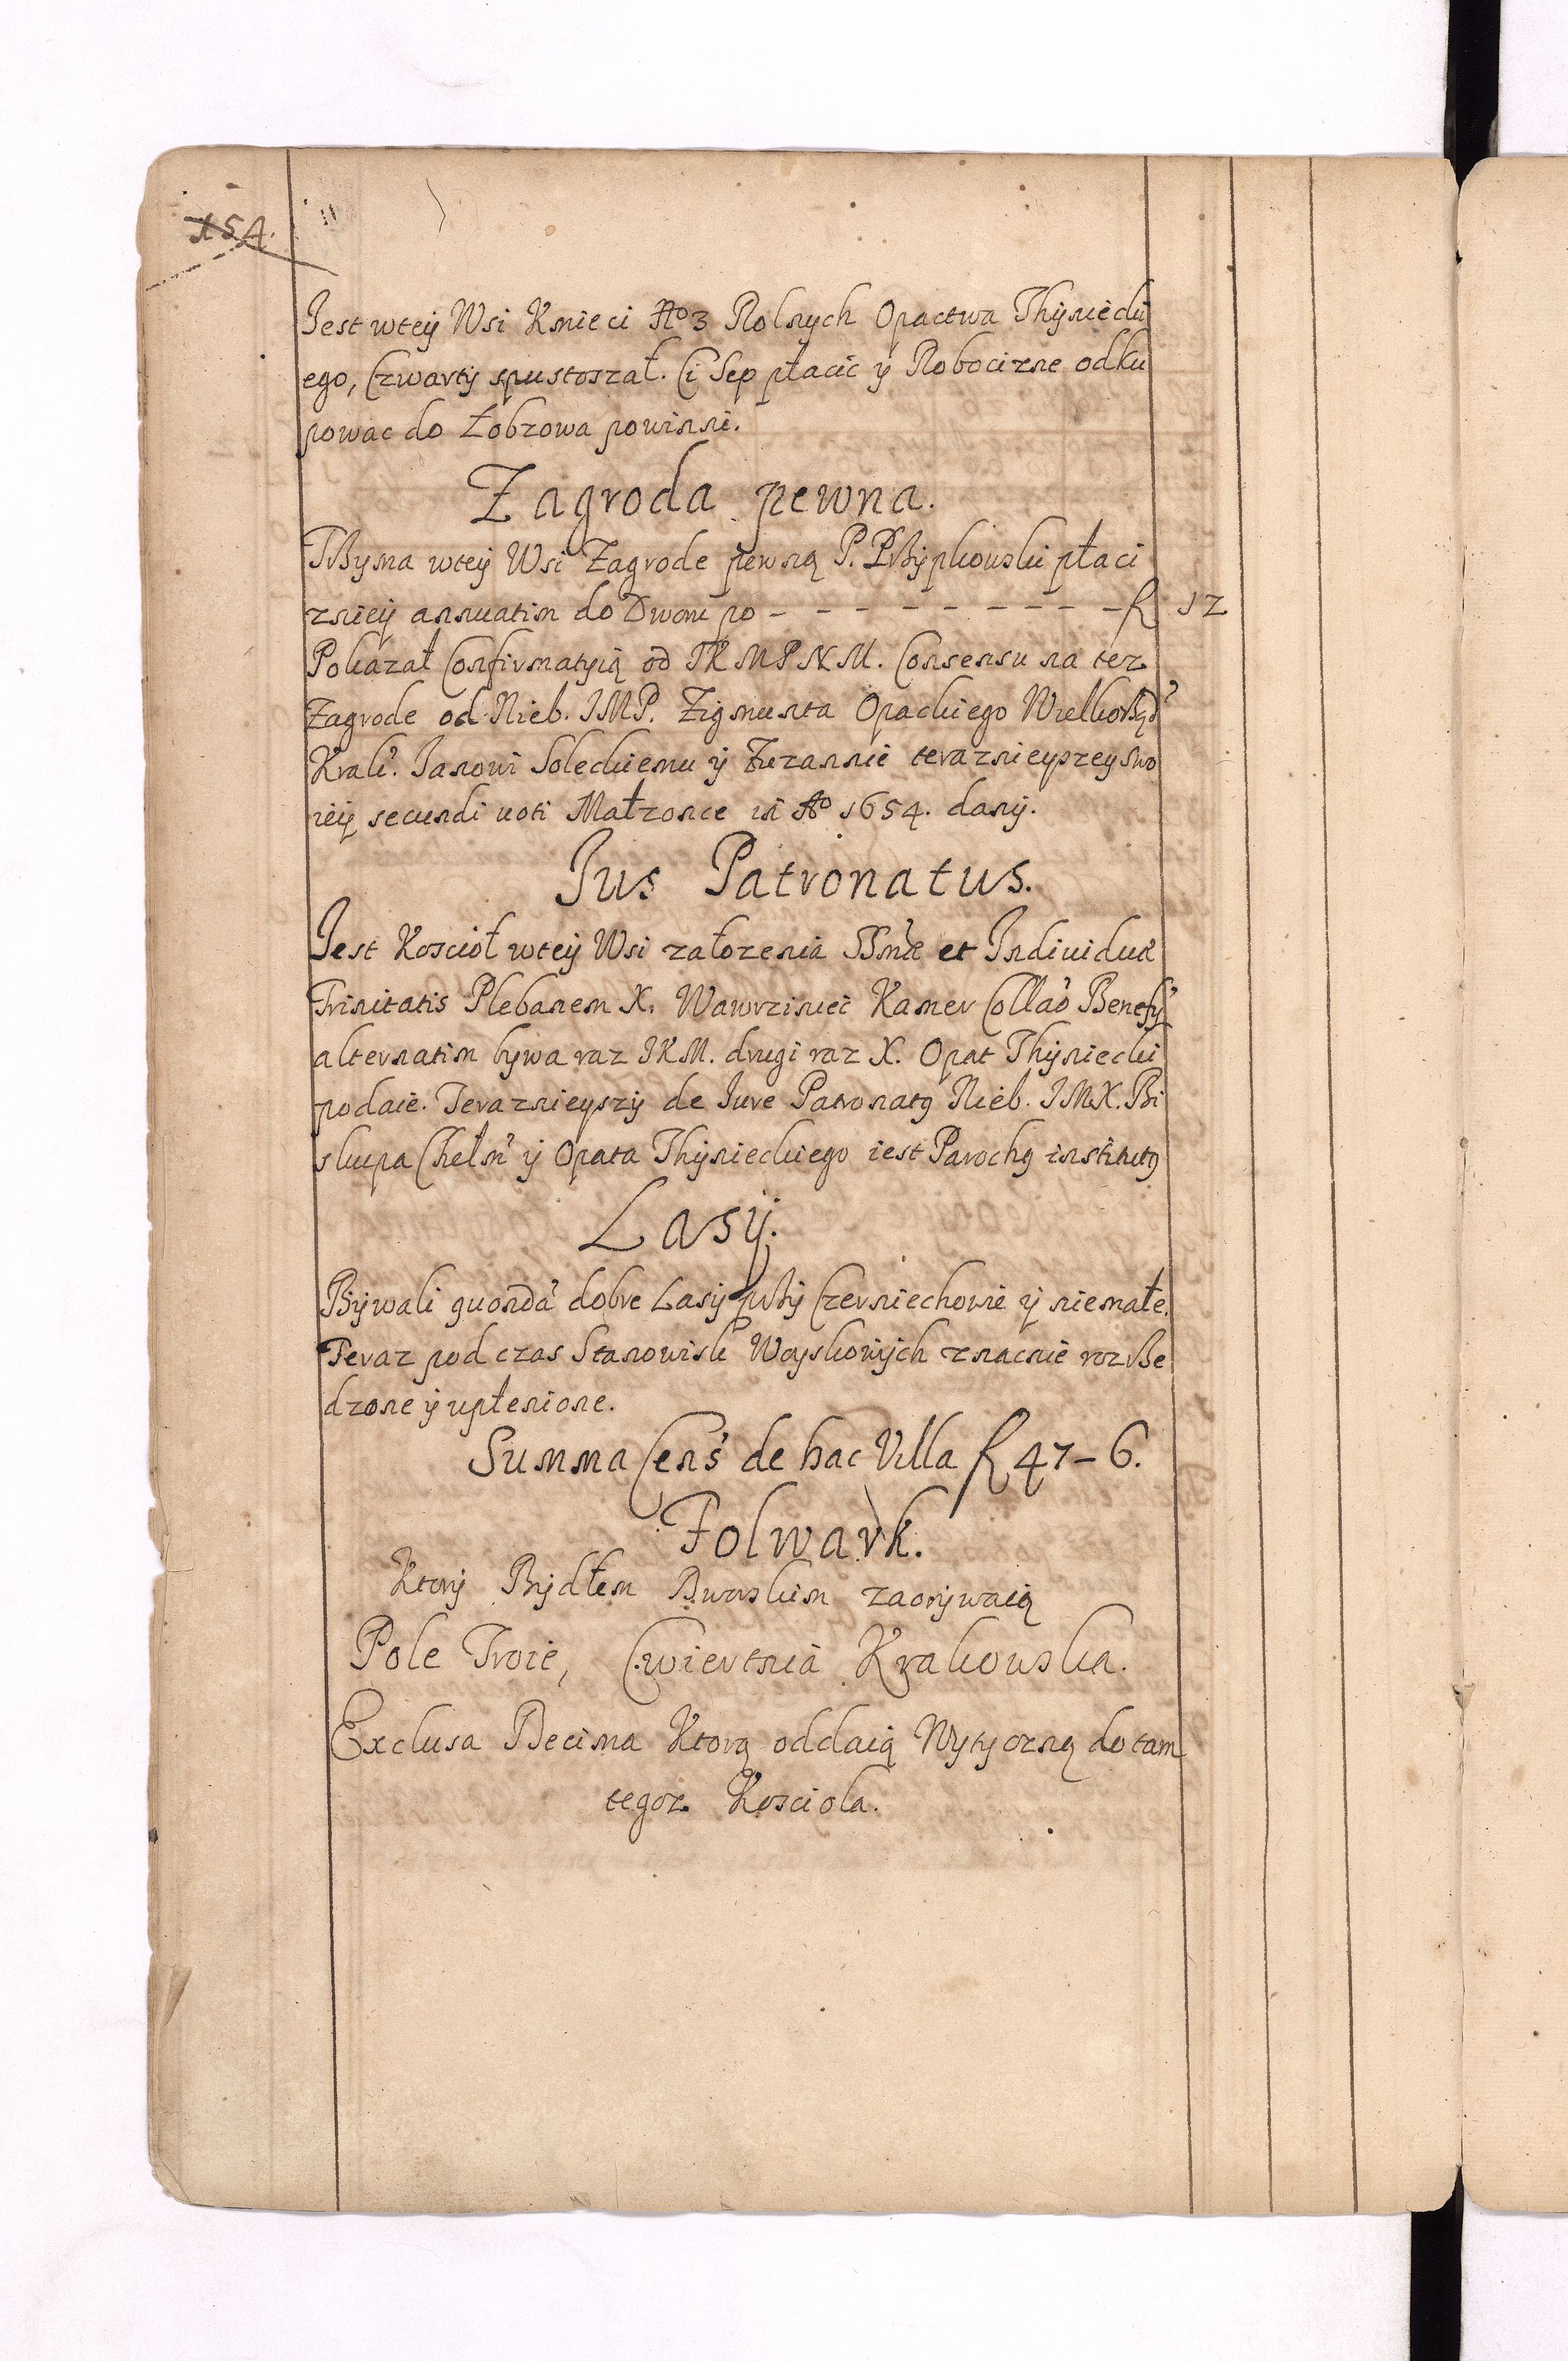 154.
Jest wtey Wsi Kmieci No 3 Rolnych Opactwa Thynieckі
ego, Czwarty spustoszał. Ci Sep płacic ÿ Robocizne odku
powac do Łobzowa powinni.
Zagroda pewna.
Trzyma wtey Wsi Zagrode pewną P. Przypkowski płaci
zniey annuatim do Dworu po - - - - - - - - - - fl 12
Pokazał Confirmatyią od JKMPNM. Consensu na tez
Zagrode od Nieb. JMP. Zigmunta Opackiego Wielkorząd
Krak. Janowi Soleckiemu ÿ Zuzannie teraznieyszey swo
iey secundi voti Małzonce in Ao 1654. dany.
Jus Patronatus.
Jest Kosciół wtey Wsi załozenia SSmæ et Individuæ
Trinitatis Plebanem X. Wawrziniec Kamer Colla'o Benefÿ
alternatim bywa raz JKM. drugi raz X. Opat Thyniecki
podaie. Teraznieyszy de Jure Patronatꝰ Nieb. JMX. Bi
skupa Chełm' ÿ Opata Thynieckiego iest Parochꝰ institutꝰ
Lasÿ.
Bÿwali quonda' dobre Lasÿ przy Czerniechowie ÿ niemałe.
Teraz pod czas Stanowisk Woyskowÿch znacnie rozrze
dzone ÿ uplenione.
Summa Cens' de hac Villa fl 47-6.
Folwark.
Ktory Bydłem Dworskim zaorywaią
Pole Troie, Cwiertnia Krakowska.
Exclusa Decima Ktorą oddaią Wytyczną do tam
tegoz Kosciola.